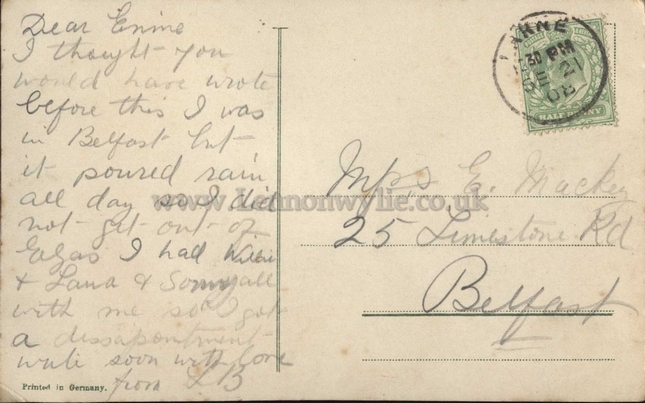 Dear Ennio
I thought you
would have wrote
before this I was
in Belfast but
it poured rain
all day so I did
not get out of
I had Willie
& Lana & Sonny all
with me so I got
a dissapointment
write soon with love
from LB
Printed in Germany.
LARNE
30 PM
DE 21
08
HALFPENNY
Mrs E. Mackey
25 Limestone Rd
Belfast
www.Lennonwylie.co.uk